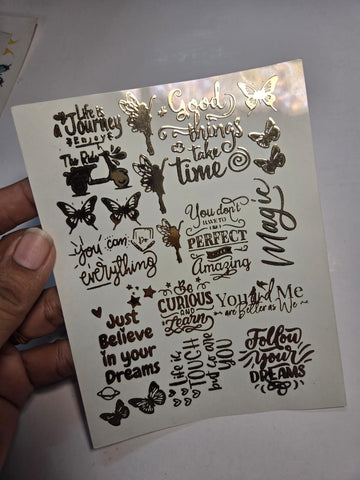 Life is
a Journey
ENJOY
The Ride
Good
things
take
time
Magic
You can
Do
everything
You don't
HAVE TO BE
PERFECT
TO BE
Amazing
Be
CURIOUS
AND
Learn
You And Me
are Better as We
Just
Believe
in your
Dreams
Life is
TOUGH
but so are
YOU
Follow
Your
DREAMS